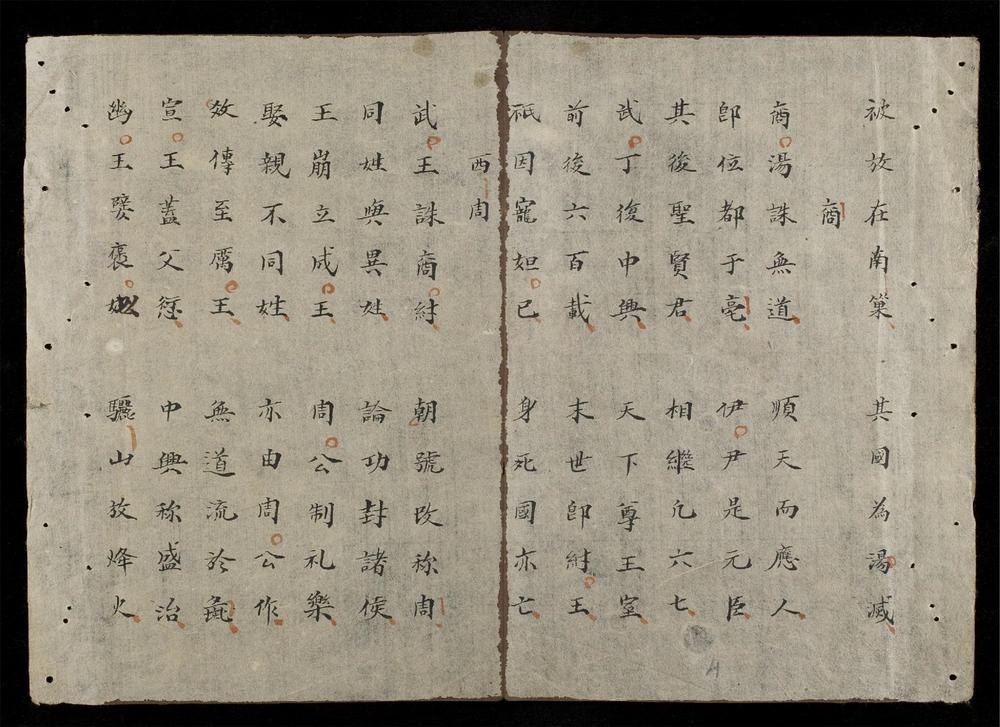 被放在南巢　其國為湯滅
商
商湯誅無道　順天而應人
即位都于亳　伊尹是元臣
其後聖賢君　相繼凢六七
武丁復中興　天下尊王室
前後六百載　末世即紂王
祇因寵妲己　身死國亦亡
西周
武王誅商紂　朝號改称周
同姓與異姓　論功封諸侯
王崩立成王　周公制礼樂
娶親不同姓　亦由周公作
效傳至厲王　無道流於彘
宣王蓋父愆　中興称盛治
幽王嬖褒姒　驪山放烽火